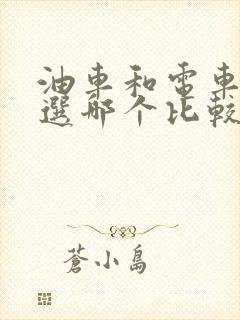 油車和電車
選那个比較
蒼小島